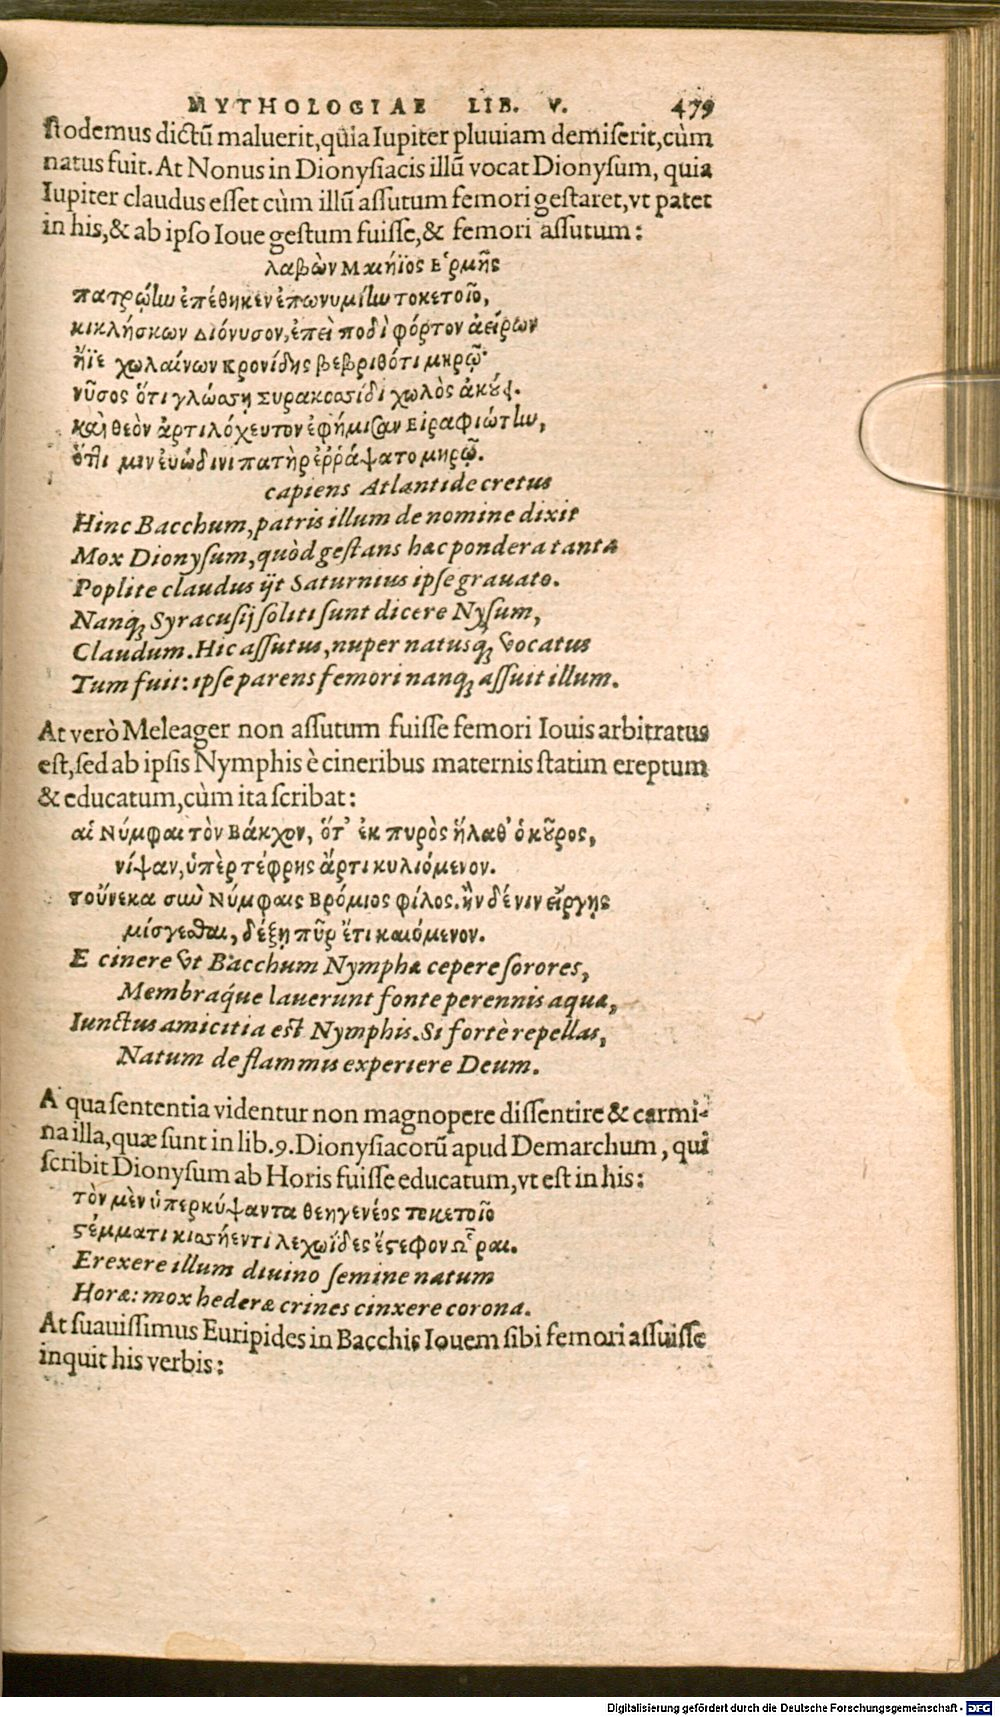 MYTHOLOGIAE LIB. V. 479
ſtodemus dictũ maluerit, quia Iupiter pluuiam demiſerit, cùm
natus fuit. At Nonus in Dionyſiacis illũ vocat Dionyſum, quia
Iupiter claudus eſſet cùm illũ aſſutum femori geſtaret, vt patet
in his, & ab ipſo Ioue geſtum fuiſſe, & femori aſſutum:
λαβὼν Μαιήϊος Ἑρμῆς
πατρῴlω ἐπέθηκεν ἐπωνυμίlω τοκετοῖο,
κικλήσκων Διόνυσον, ἐπεὶ ποδὶ φόρτον ἀείρων
ἤϊε χωλαίνων Κρονίδης βεβριθότι μηρῷ·
νῦσος ὅτι γλώσσῃ Συρακοσσίδι χωλὸς ἀκούει.
καὶ θεὸν ἀρτιλόχευτον ἐφήμισαν Εἰραφιώτlω,
ὅττι μιν εὐώδινι πατὴρ ἐῤῥάψατο μηρῷ.
capiens Atlantide cretus
Hinc Bacchum, patris illum de nomine dixit
Mox Dionyſum, quòd geſtans hac pondera tanta
Poplite claudus ijt Saturnius ipſe grauato.
Nanq; Syracuſij ſoliti ſunt dicere Nyſum,
Claudum. Hic aſſutus, nuper natusq; vocatus
Tum fuit: ipſe parens femori nanq; aſſuit illum.
At verò Meleager non aſſutum fuiſſe femori Iouis arbitratus
eſt, ſed ab ipſis Nymphis è cineribus maternis ſtatim ereptum
& educatum, cùm ita ſcribat:
αἱ Νύμφαι τὸν Βάκχον, ὅτ' ἐκ πυρὸς ἥλαθ' ὁ κοῦρος,
νίψαν, ὑπὲρ τέφρης ἄρτι κυλιόμενον.
τοὔνεκα σὺν Νύμφαις Βρόμιος φίλος. ἢν δέ νιν εἴργῃς
μίσγεσθαι, δέξῃ πῦρ ἔτι καιόμενον.
E cinere vt Bacchum Nympha cepere ſorores,
Membraq́ue lauerunt fonte perennis aqua,
Iunctus amicitia eſt Nymphis. Si fortè repellas,
Natum de flammis experiere Deum.
A qua ſententia videntur non magnopere diſſentire & carmi-
na illa, quæ ſunt in lib. 9. Dionyſiacorũ apud Demarchum, qui
ſcribit Dionyſum ab Horis fuiſſe educatum, vt eſt in his:
τὸν μὲν ὑπερκύψαντα θεηγενέος τοκετοῖο
ϛέμματι κισσήεντι λεχωΐδες ἔϛεφον Ὧραι.
Erexere illum diuino ſemine natum
Horæ: mox hederæ crines cinxere corona.
At ſuauiſſimus Euripides in Bacchis Iouem ſibi femori aſſuiſſe
inquit his verbis:
Digitalisierung gefördert durch die Deutsche Forschungsgemeinschaft - DFG